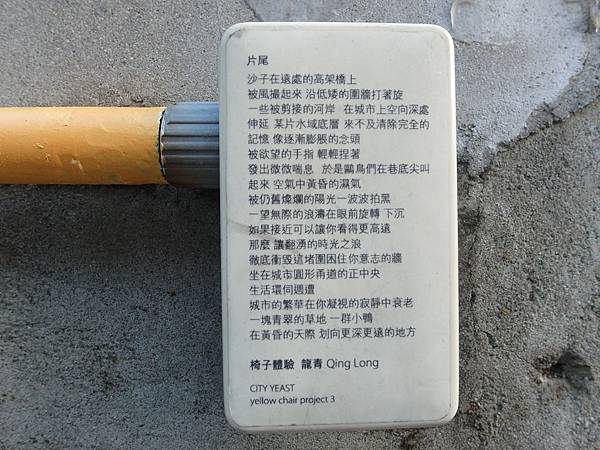 片尾
沙子在遠處的高架橋上
被風撮起來 沿低矮的圍牆打著旋
一些被剪接的河岸 在城市上空向深處
伸延 某片水域底層 來不及清除完全的
記憶 像逐漸膨脹的念頭
被欲望的手指 輕輕捏著
發出微微喘息 於是鷗鳥們在巷底尖叫
起來 空氣中黃昏的濕氣
被仍舊燦爛的陽光一波波拍黑
一望無際的浪濤在眼前旋轉 下沉
如果接近可以讓你看得更高遠
那麼 讓翻湧的時光之浪
徹底衝毀這堵圍困住你意志的牆
坐在城市圓形甬道的正中央
生活環伺週遭
城市的繁華在你凝視的寂靜中衰老
一塊青翠的草地 一群小鴨
在黃昏的天際 划向更深更遠的地方
椅子體驗 龍青 Qing Long
CITY YEAST
yellow chair project 3